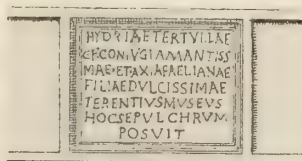 HYDRIAETERTVLLAE
C·F·CONIVGIAMANTISS
MAE·ETAXIAEAELIANAE
FILIAEDVLCISSIMAE
TERENTIVSMVSEVS
HOCSEPVLCHRVM
POSVIT